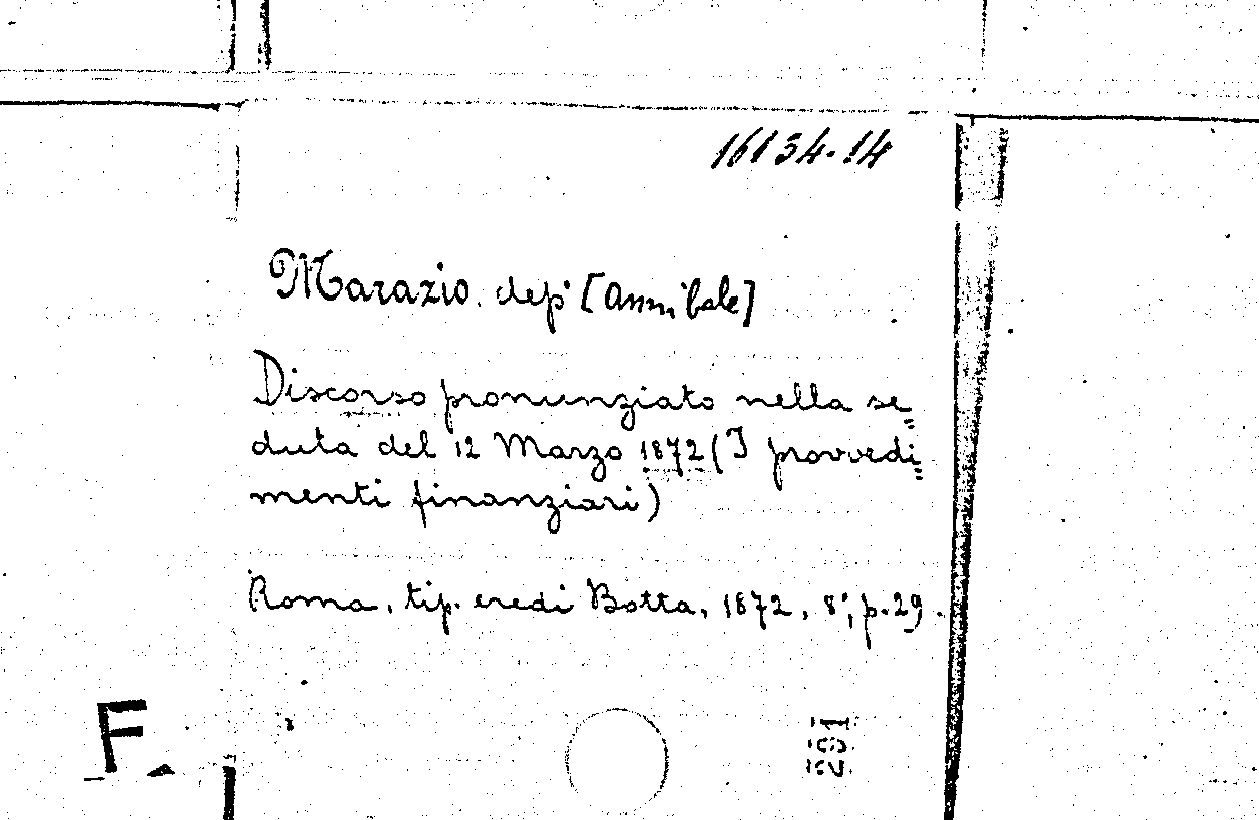 16134.14
Marazio. dep. [Annibale]
Discorso pronunziato nella se=
duta del 12 Marzo 1872 (I provvedi=
menti finanziari)
Roma, tip. eredi Botta, 1872, 8°, p. 29.
F